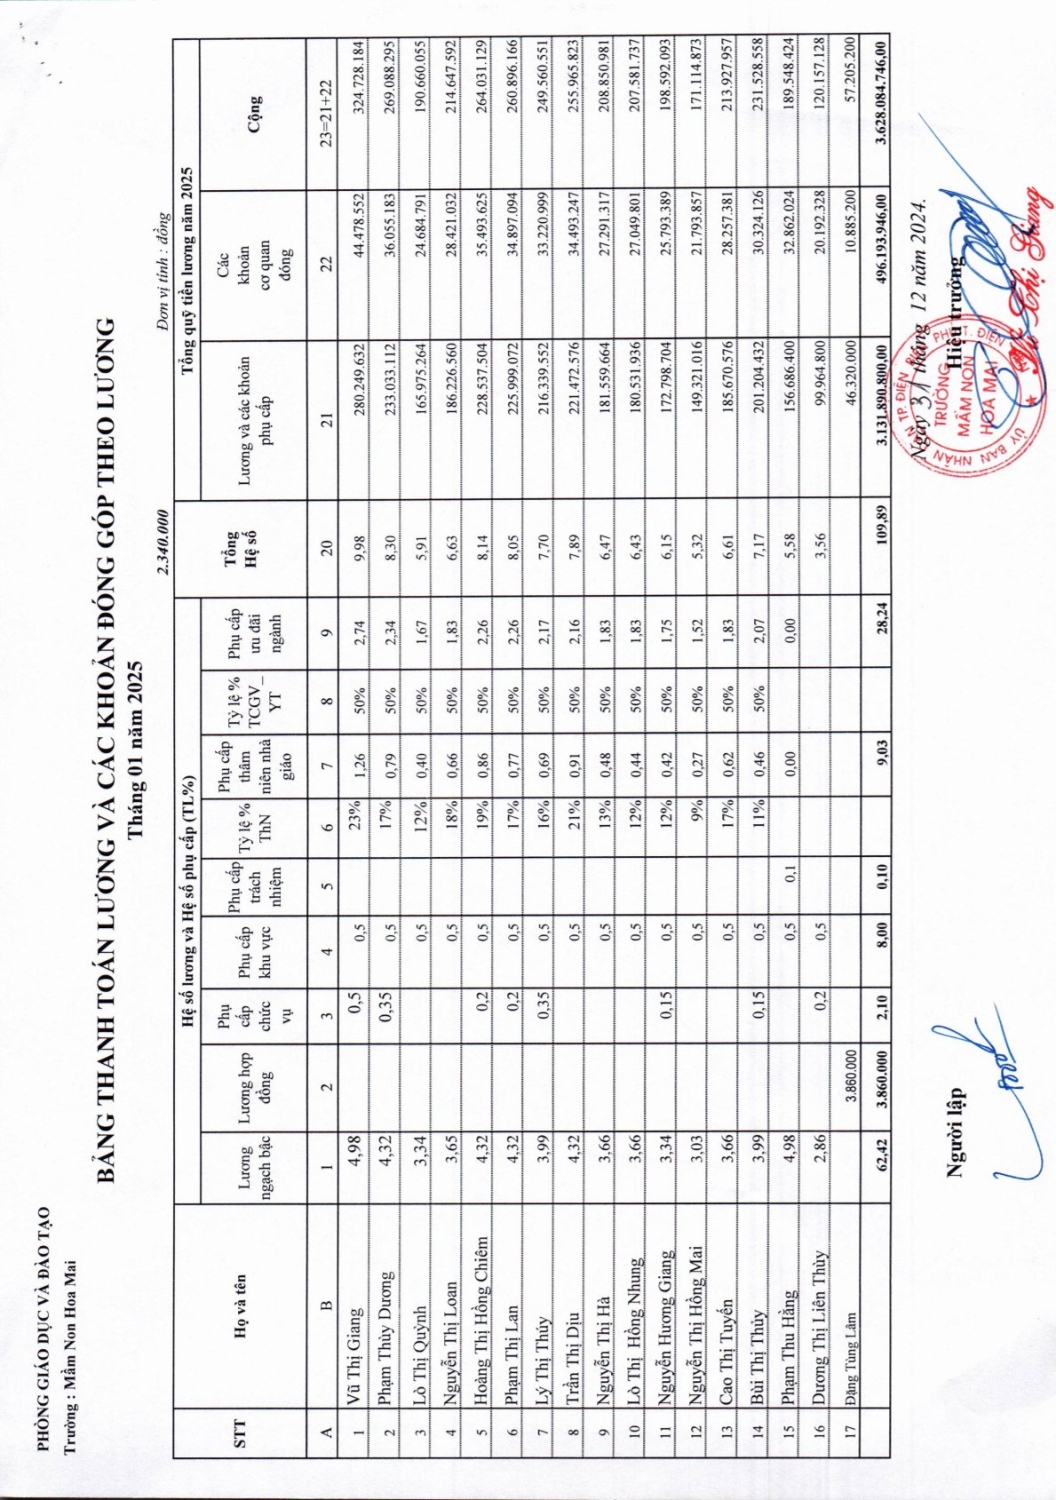 PHÒNG GIÁO DỤC VÀ ĐÀO TẠO
Trường : Mầm Non Hoa Mai
BẢNG THANH TOÁN LƯƠNG VÀ CÁC KHOẢN ĐÓNG GÓP THEO LƯƠNG
Tháng 01 năm 2025
2.340.000 Đơn vị tính : đồng
STT Họ và tên Hệ số lương và Hệ số phụ cấp (TL%) Tổng Hệ số Tổng quỹ tiền lương năm 2025
Lương ngạch bậc Lương hợp đồng Phụ cấp chức vụ Phụ cấp khu vực Phụ cấp trách nhiệm Tỷ lệ % ThN Phụ cấp thâm niên nhà giáo Tỷ lệ % TCGV_ YT Phụ cấp ưu đãi ngành Lương và các khoản phụ cấp Các khoản cơ quan đóng Cộng
A B 1 2 3 4 5 6 7 8 9 20 21 22 23=21+22
1 Vũ Thị Giang 4,98 0,5 0,5 23% 1,26 50% 2,74 9,98 280.249.632 44.478.552 324.728.184
2 Phạm Thùy Dương 4,32 0,35 0,5 17% 0,79 50% 2,34 8,30 233.033.112 36.055.183 269.088.295
3 Lò Thị Quỳnh 3,34 0,5 12% 0,40 50% 1,67 5,91 165.975.264 24.684.791 190.660.055
4 Nguyễn Thị Loan 3,65 0,5 18% 0,66 50% 1,83 6,63 186.226.560 28.421.032 214.647.592
5 Hoàng Thị Hồng Chiêm 4,32 0,2 0,5 19% 0,86 50% 2,26 8,14 228.537.504 35.493.625 264.031.129
6 Phạm Thị Lan 4,32 0,2 0,5 17% 0,77 50% 2,26 8,05 225.999.072 34.897.094 260.896.166
7 Lý Thị Thúy 3,99 0,35 0,5 16% 0,69 50% 2,17 7,70 216.339.552 33.220.999 249.560.551
8 Trần Thị Dịu 4,32 0,5 21% 0,91 50% 2,16 7,89 221.472.576 34.493.247 255.965.823
9 Nguyễn Thị Hà 3,66 0,5 13% 0,48 50% 1,83 6,47 181.559.664 27.291.317 208.850.981
10 Lò Thị Hồng Nhung 3,66 0,5 12% 0,44 50% 1,83 6,43 180.531.936 27.049.801 207.581.737
11 Nguyễn Hương Giang 3,34 0,15 0,5 12% 0,42 50% 1,75 6,15 172.798.704 25.793.389 198.592.093
12 Nguyễn Thị Hồng Mai 3,03 0,5 9% 0,27 50% 1,52 5,32 149.321.016 21.793.857 171.114.873
13 Cao Thị Tuyến 3,66 0,5 17% 0,62 50% 1,83 6,61 185.670.576 28.257.381 213.927.957
14 Bùi Thị Thúy 3,99 0,15 0,5 11% 0,46 50% 2,07 7,17 201.204.432 30.324.126 231.528.558
15 Phạm Thu Hằng 4,98 0,5 0,1 0,00 0,00 5,58 156.686.400 32.862.024 189.548.424
16 Dương Thị Liên Thùy 2,86 0,2 0,5 3,56 99.964.800 20.192.328 120.157.128
17 Đặng Tùng Lâm 3.860.000 46.320.000 10.885.200 57.205.200
62,42 3.860.000 2,10 8,00 0,10 9,03 28,24 109,89 3.131.890.800,00 496.193.946,00 3.628.084.746,00
Ngày 31 tháng 12 năm 2024.
Người lập Hiệu trưởng
TRƯỜNG
MẦM NON
HOA MAI
Vũ Thị Giang